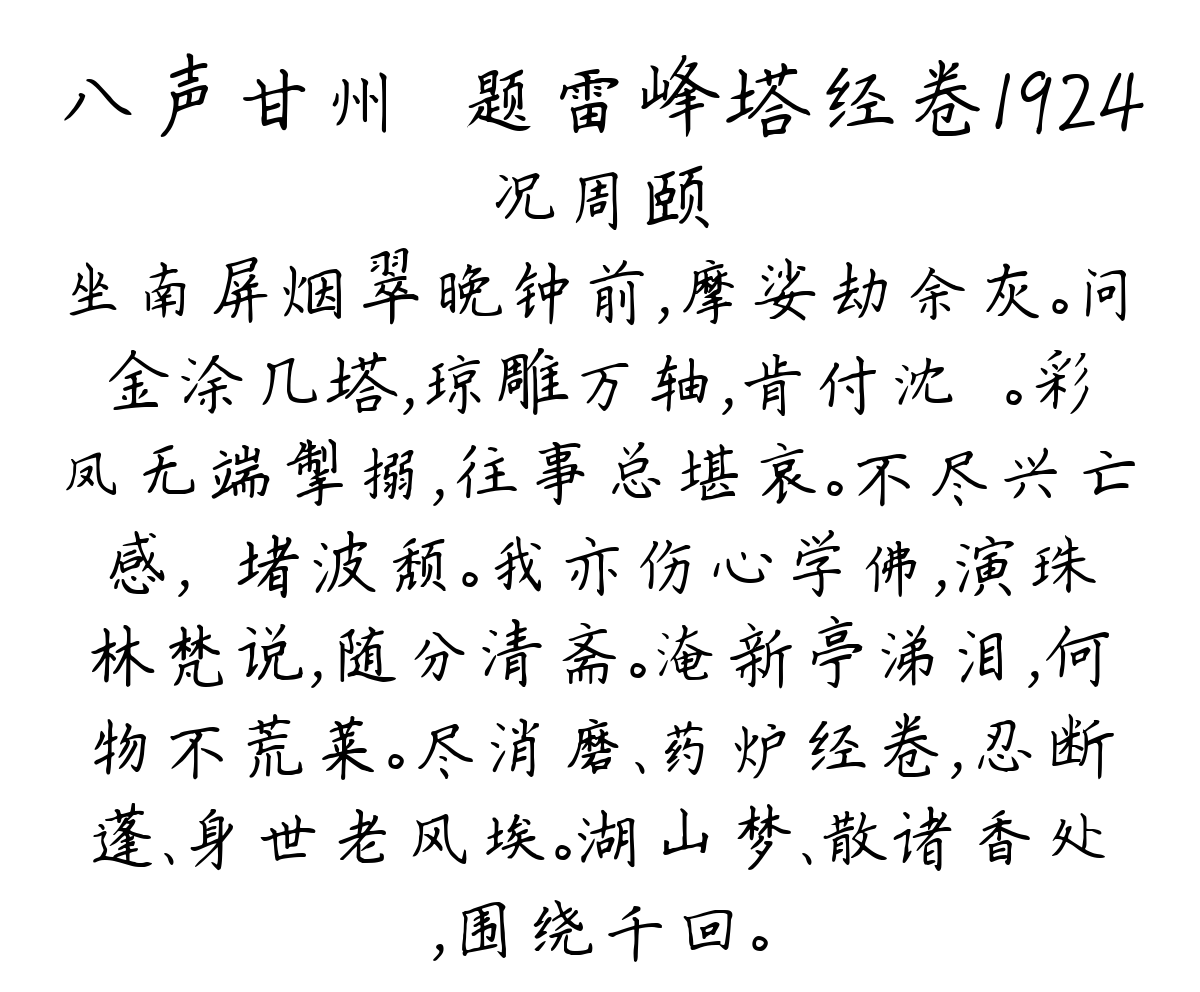 八声甘州 题雷峰塔经卷1924
况周颐
坐南屏烟翠晚钟前,摩娑劫余灰。问
金涂几塔,琼雕万轴,肯付沈 。彩
凤无端掣搦,往事总堪哀。不尽兴亡
感, 堵波颓。我亦伤心学佛,演珠
林梵说,随分清斋。淹新亭涕泪,何
物不荒莱。尽消磨、药炉经卷,忍断
蓬、身世老风埃。湖山梦、散诸香处
,围绕千回。